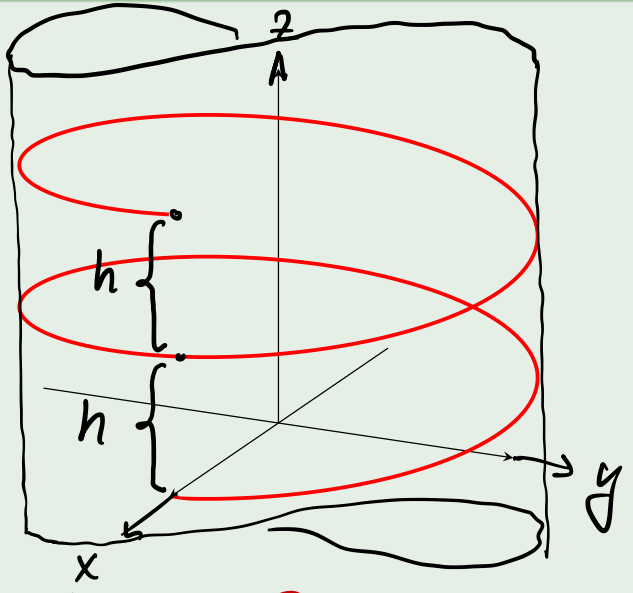 z
h
h
y
x